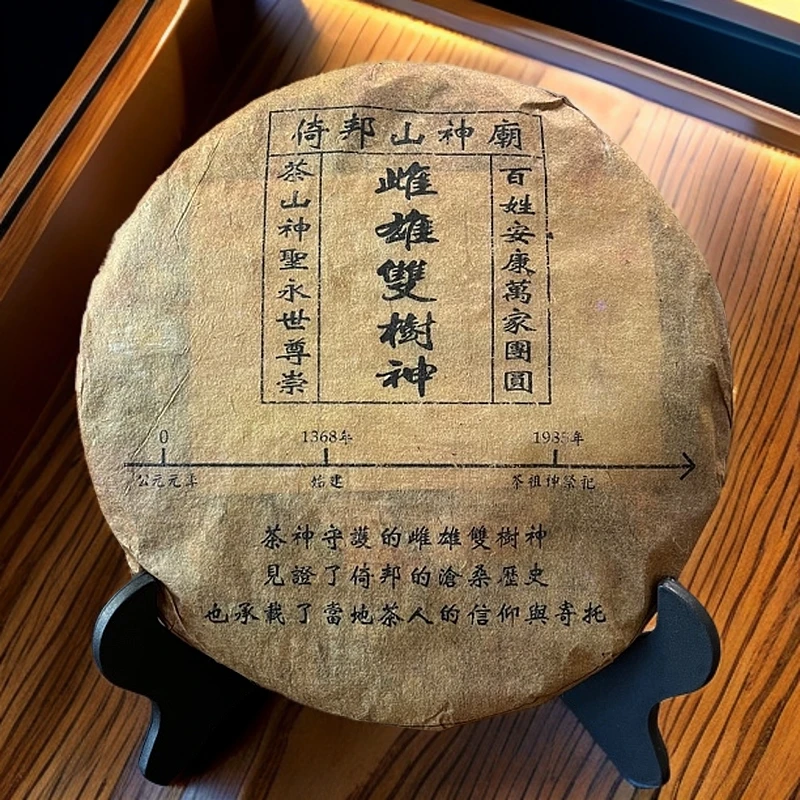 倚邦山神廟
百姓安康萬家團圓
雌雄雙樹神
茶山神聖永世尊崇
0
1368年
公元元年
始建
茶祖神祭祀
茶神守護的雌雄雙樹神
見證了倚邦的滄桑歷史
也承載了當地茶人的信仰與寄托